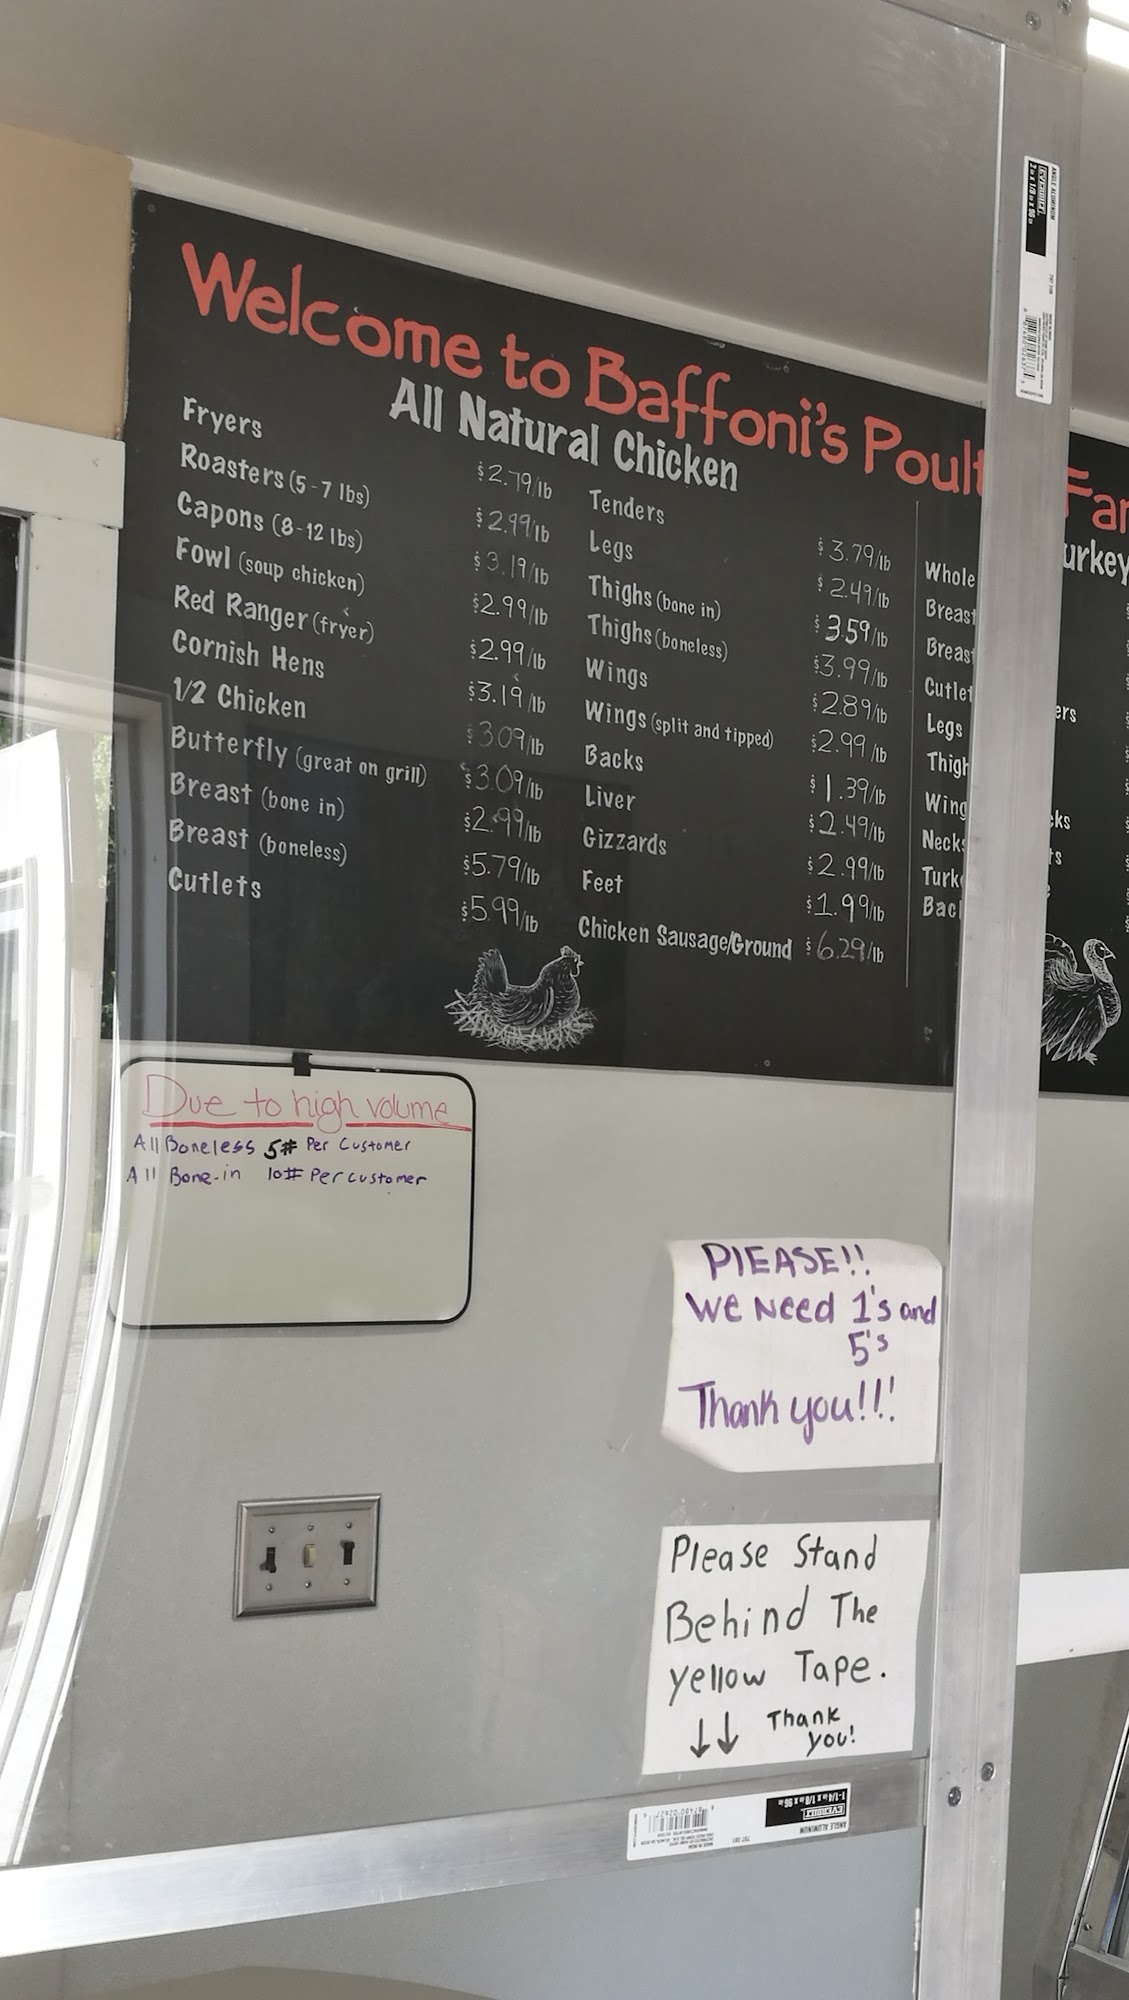 Welcome to Baffoni's Poult
Far
All Natural Chicken
Fryers $2.79/lb
Roasters (5-7 lbs) $2.99/lb
Capons (8-12 lbs) $3.19/lb
Fowl (soup chicken) $2.99/lb
Red Ranger (fryer) $2.99/lb
Cornish Hens $3.19/lb
1/2 Chicken $3.09/lb
Butterfly (great on grill) $3.09/lb
Breast (bone in) $2.99/lb
Breast (boneless) $5.79/lb
Cutlets $5.99/lb
Tenders $3.79/lb
Legs $2.49/lb
Thighs (bone in) $3.59/lb
Thighs (boneless) $3.99/lb
Wings $2.89/lb
Wings (split and tipped) $2.99/lb
Backs $1.39/lb
Liver $2.49/lb
Gizzards $2.99/lb
Feet $1.99/lb
Chicken Sausage/Ground $6.29/lb
urkey
Whole
Breast
Breas
Cutlet
ers
Legs
Thigh
Wing
Necks
Turk
Bac
Due to high volume
All Boneless 5# Per Customer
All Bone-in 10# Per customer
PlEASE!!
We Need 1's and
5's
Thank you!!!
Please Stand
Behind The
yellow Tape.
↓↓ Thank
you!
ANGLE ALUMINUM
EVERBILT
2 in x 1/8 in x 96 in
ANGLE ALUMINUM
EVERBILT
1-1/4 in x 1/8 in x 96 in